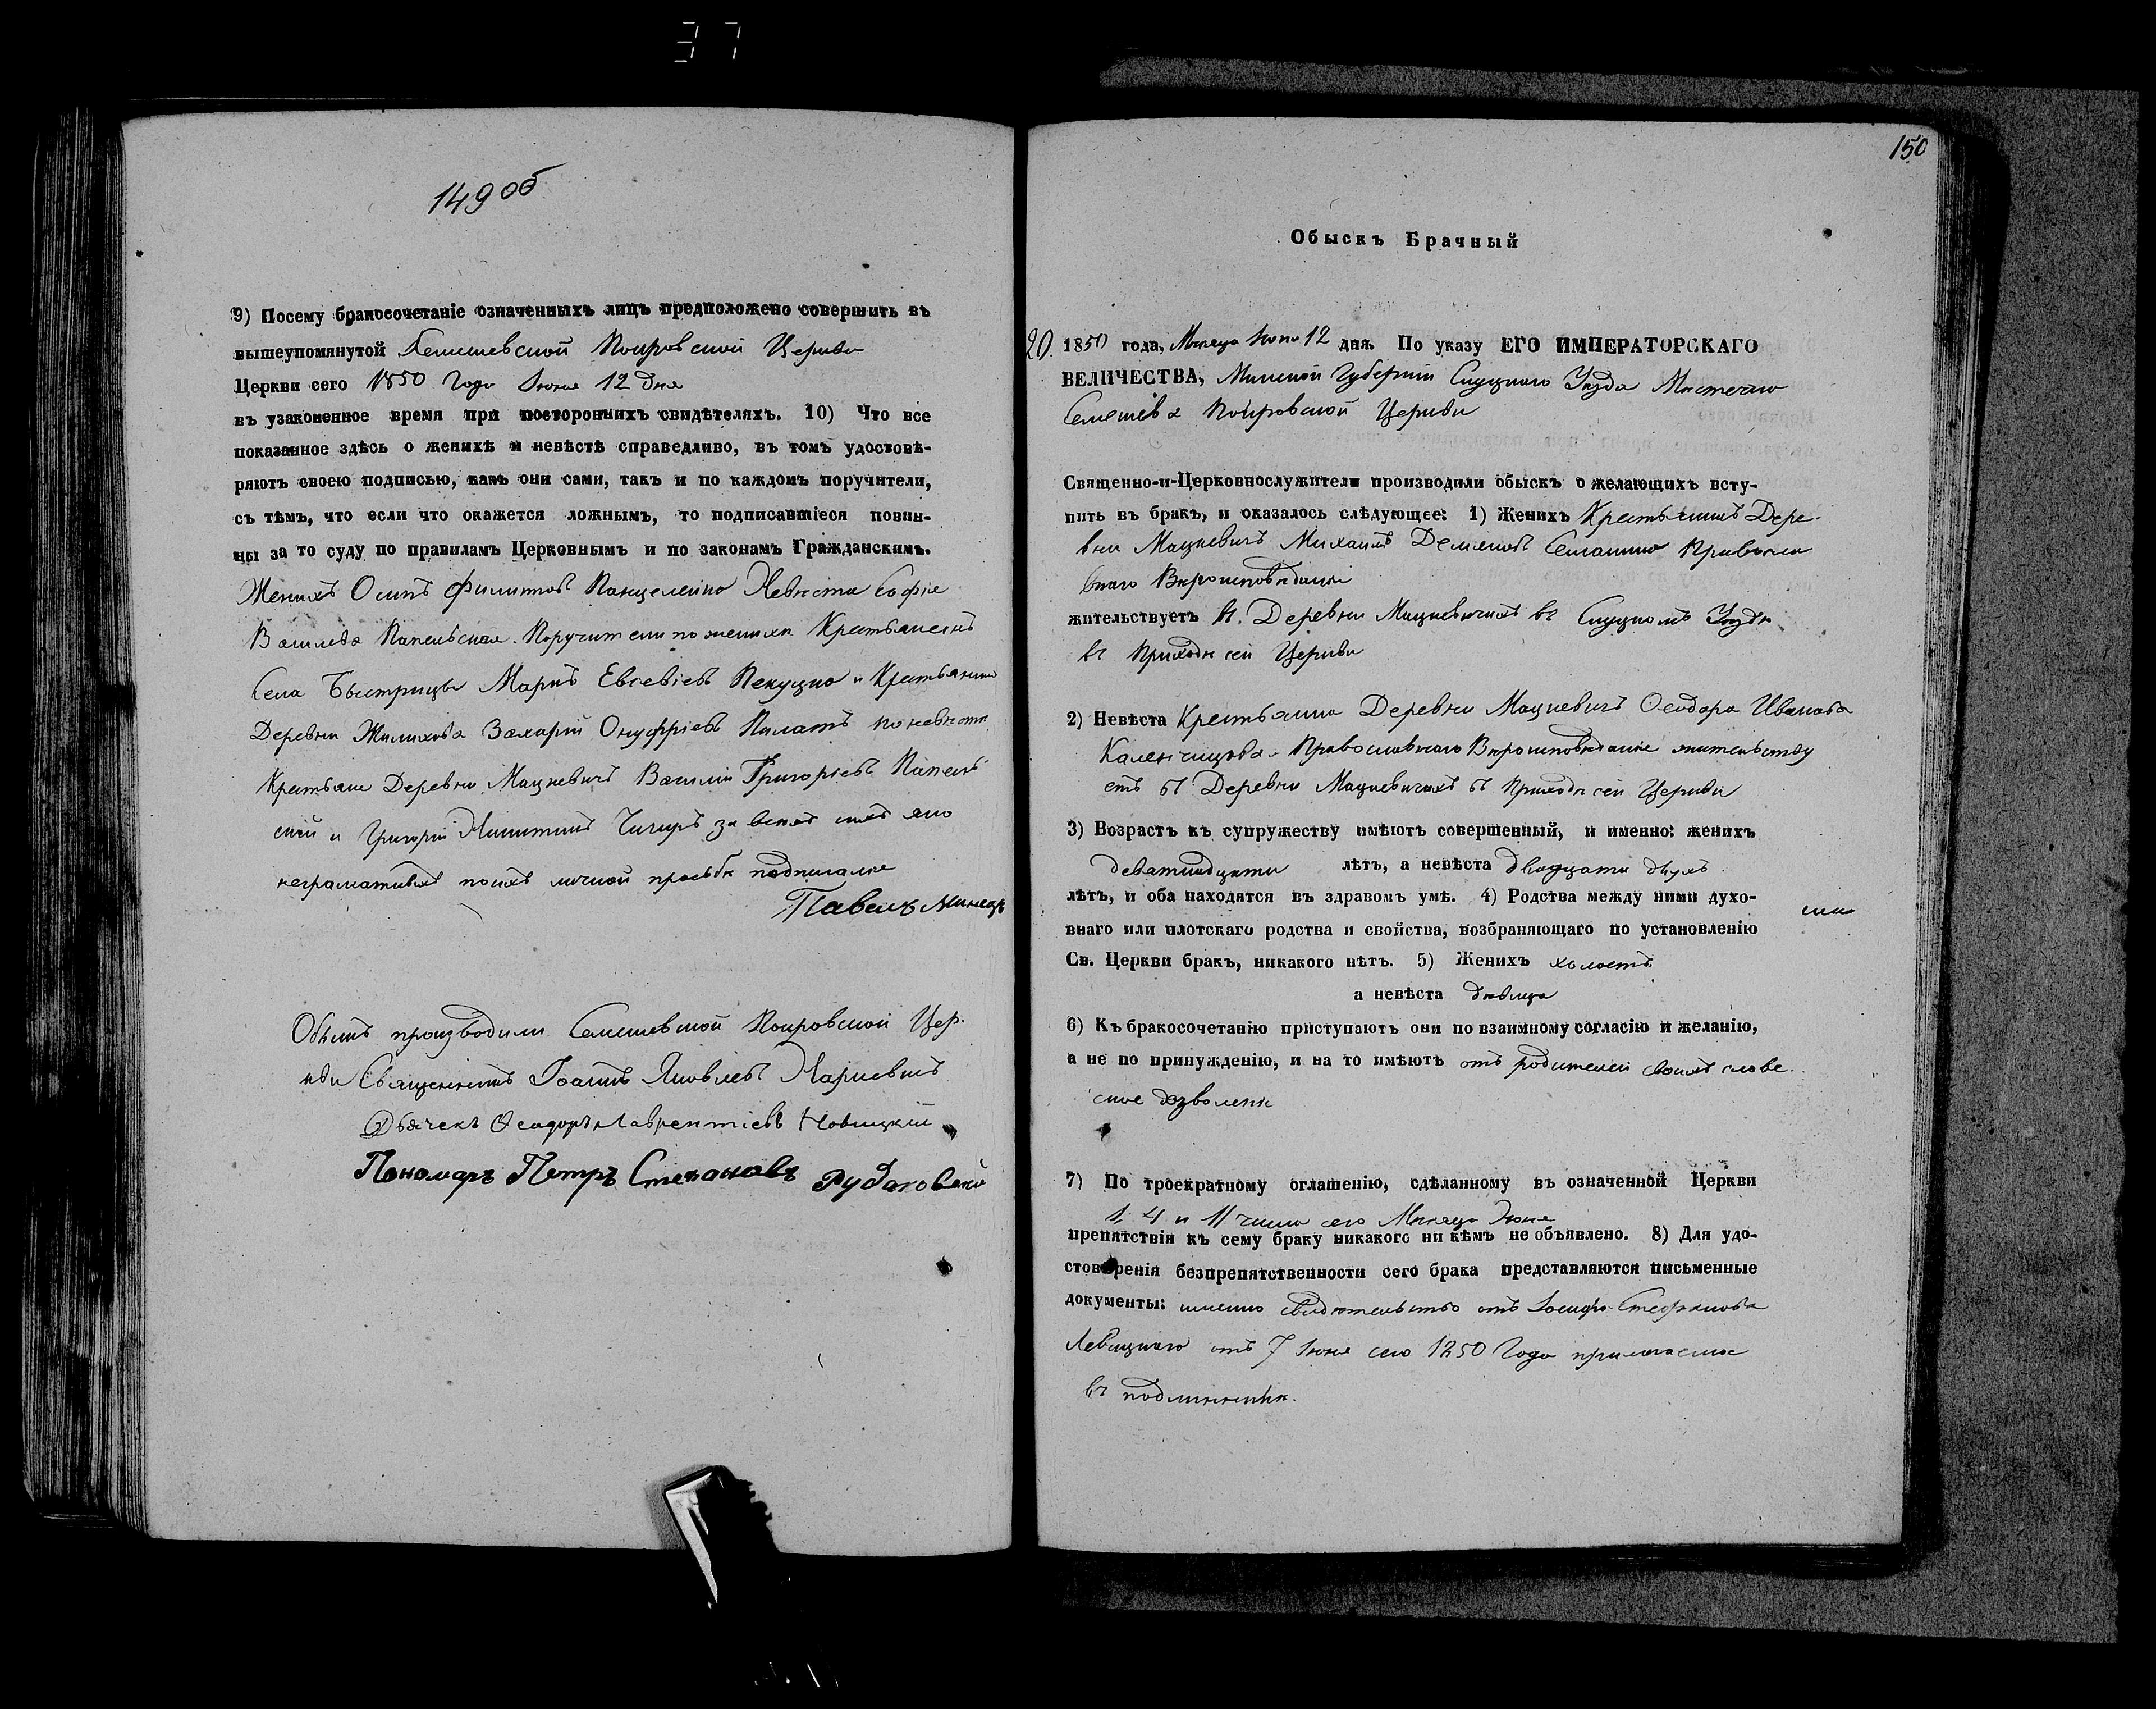 37
149 об
9) Посему бракосочетаніе означенныхъ лицъ предположено совершить въ
вышеупомянутой Семежевской Покровской Церкви
Церкви сего 1850 Года Іюня 12 дня
въ узаконенное время при постороннихъ свидѣтеляхъ. 10) Что все
показанное здѣсь о женихѣ и невѣстѣ справедливо, въ томъ удостовѣ-
ряютъ своею подписью, какъ они сами, такъ и по каждомъ поручители,
съ тѣмъ, что если что окажется ложнымъ, то подписавшіеся повин-
ны за то суду по правиламъ Церковнымъ и по законамъ Гражданскимъ.
Женихъ Осипъ Филиповъ Невѣста Софія
Василева Поручители по женихѣ Крестьянинъ
Села Быстрицы Маркъ Евсевіевъ и Крестьянинъ
Деревни Жилихова Захарій Онуфріевъ Пилатъ по невѣстѣ
Крестьяне Деревни Мацкевичъ Василій Григорьевъ
и Григорій Никитинъ Чичиръ за всѣхъ ихъ яко
неграматныхъ по ихъ личной просьбѣ подписался
Павелъ
Обыскъ производили Семежевской Покровской Цер-
кви Священникъ Іоаннъ Яковлевъ
Дьячекъ Ѳеодоръ Лаврентіевъ Новицкій
Пономарь Петръ Степановъ
150
Обыскъ Брачный
20. 1850 года, Мѣсяца Іюня 12 дня. По указу ЕГО ИМПЕРАТОРСКАГО
ВЕЛИЧЕСТВА, Минской Губерніи Слуцкаго Уѣзда Мѣстечка
Семежева Покровской Церкви
Священно-и-Церковнослужители производили обыскъ о желающихъ всту-
пить въ бракъ, и оказалось слѣдующее: 1) Женихъ Крестьянинъ Дере-
вни Мацкевичъ Михаилъ Демяновъ Православ
наго Вѣроисповѣданія
жительствуетъ въ Деревни Мацкевичахъ въ Слуцкомъ Уѣздѣ
въ Приходѣ сей Церкви
2) Невѣста Крестьянка Деревни Мацкевичъ Ѳеодора Иванова
Православнаго Вѣроисповѣданія жительству
етъ въ Деревни Мацкевичахъ въ Приходѣ сей Церкви
3) Возрастъ къ супружеству имѣютъ совершенный, и именно: женихъ
девятнадцати лѣтъ, а невѣста двадцати двухъ
лѣтъ, и оба находятся въ здравомъ умѣ. 4) Родства между ними духо-
внаго или плотскаго родства и свойства, возбраняющаго по установленію
Св. Церкви бракъ, никакого нѣтъ. 5) Женихъ холостъ
а невѣста дѣвица
6) Къ бракосочетанію приступаютъ они по взаимному согласію и желанію,
а не по принужденію, и на то имѣютъ отъ родителей своихъ слове
сное дозволеніе
7) По троекратному оглашенію, сдѣланному въ означенной Церкви
1, 4 и 11 числа сего Мѣсяца Іюня
препятствія къ сему браку никакого ни кѣмъ не объявлено. 8) Для удо-
стовѣренія безпрепятственности сего брака представляются письменные
документы: именно свидѣтельство отъ Іосифа Стефанова
Левицкаго отъ 7 Іюня сего 1850 Года прилагаемое
въ подлинникѣ.